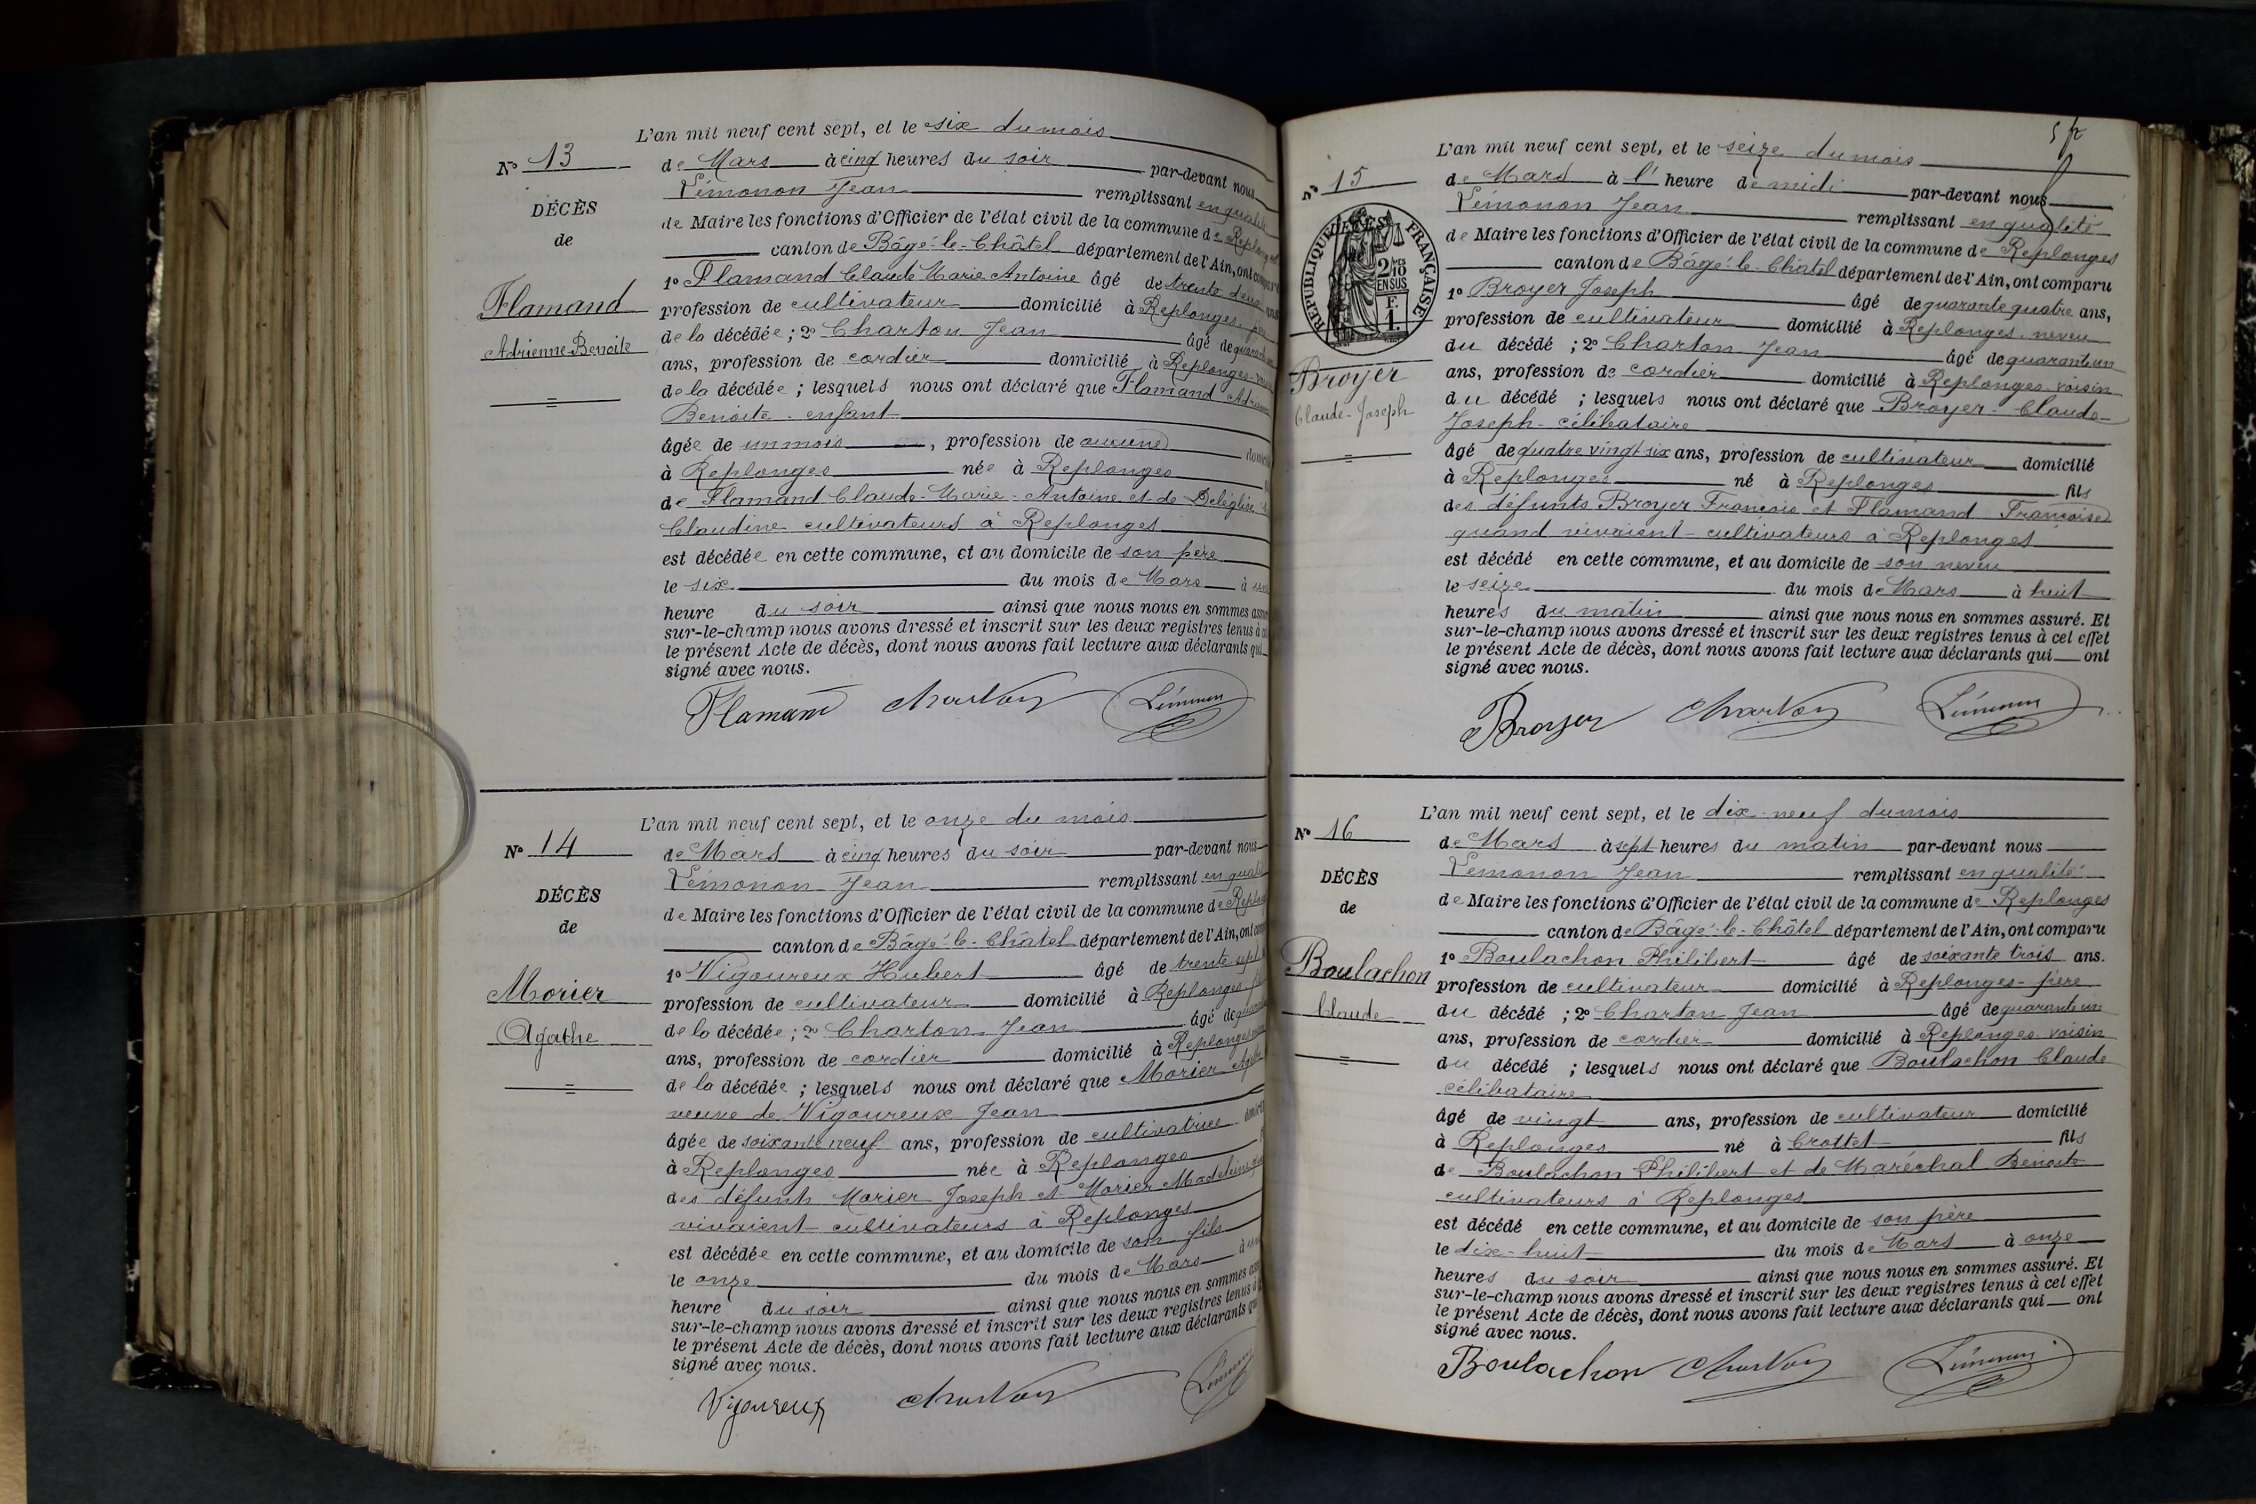 L'an mil neuf cent sept, et le six du mois
N° 13
de Mars à cinq heures du soir par-devant nous
Lémonon Jean remplissant en qualité
DÉCÈS
de Maire les fonctions d'Officier de l'état civil de la commune de
de
canton de Bâgé-le-Châtel département de l'Ain, ont
Flamand
1° Flamand Claude Marie Antoine âgé de trente deux ans
profession de cultivateur domicilié à Replonges
Adrienne-Benoite
de la décédée ; 2° Charton Jean âgé de
ans, profession de cordier domicilié à Replonges
de la décédée ; lesquels nous ont déclaré que Flamand
Benoite enfant
âgée de un mois, profession de aucune
à Replonges née à Replonges
de Flamand Claude-Marie-Antoine et de Deléglise
Claudine cultivateurs à Replonges
est décédée en cette commune, et au domicile de son père
le six du mois de Mars à
heure du soir ainsi que nous nous en sommes
sur-le-champ nous avons dressé et inscrit sur les deux registres tenus à
le présent Acte de décès, dont nous avons fait lecture aux déclarants qui
signé avec nous.
Flamand Charton Lémonon
L'an mil neuf cent sept, et le onze du mois
N° 14
de Mars à cinq heures du soir par-devant nous
Lémonon Jean remplissant en qualité
DÉCÈS
de Maire les fonctions d'Officier de l'état civil de la commune de
de
canton de Bâgé-le-Châtel département de l'Ain, ont
Morier
1° Vigoureux Hubert âgé de trente sept
profession de cultivateur domicilié à Replonges
Agathe
de la décédée ; 2° Charton Jean âgé de
ans, profession de cordier domicilié à Replonges
de la décédée ; lesquels nous ont déclaré que Morier
veuve de Vigoureux Jean
âgée de soixante neuf ans, profession de cultivatrice
à Replonges née à Replonges
des défunts Morier Joseph et Morier Madeleine
vivaient cultivateurs à Replonges
est décédée en cette commune, et au domicile de son fils
le onze du mois de Mars à
heure du soir ainsi que nous nous en sommes
sur-le-champ nous avons dressé et inscrit sur les deux registres tenus à
le présent Acte de décès, dont nous avons fait lecture aux déclarants qui
signé avec nous.
Vigoureux Charton Lémonon
5 fr
L'an mil neuf cent sept, et le seize du mois
N° 15
de Mars à l' heure de midi par-devant nous
Lémonon Jean remplissant en qualité
de Maire les fonctions d'Officier de l'état civil de la commune de Replonges
RÉPUBLIQUE FRANÇAISE
2/10 EN SUS
F. 1.
canton de Bâgé-le-Châtel département de l'Ain, ont comparu
1° Broyer Joseph âgé de quarante quatre ans,
profession de cultivateur domicilié à Replonges neveu
du décédé ; 2° Charton Jean âgé de quarante un
Broyer
ans, profession de cordier domicilié à Replonges voisin
Claude-Joseph
du décédé ; lesquels nous ont déclaré que Broyer-Claude
Joseph-célibataire
âgé de quatre vingt six ans, profession de cultivateur domicilié
à Replonges né à Replonges fils
des défunts Broyer François et Flamand Françoise
quand vivaient cultivateurs à Replonges
est décédé en cette commune, et au domicile de son neveu
le seize du mois de Mars à huit
heures du matin ainsi que nous nous en sommes assuré. Et
sur-le-champ nous avons dressé et inscrit sur les deux registres tenus à cel effet
le présent Acte de décès, dont nous avons fait lecture aux déclarants qui ont
signé avec nous.
Broyer Charton Lémonon
L'an mil neuf cent sept, et le dix-neuf du mois
N° 16
de Mars à sept heures du matin par-devant nous
Lémonon Jean remplissant en qualité
DÉCÈS
de Maire les fonctions d'Officier de l'état civil de la commune de Replonges
de
canton de Bâgé-le-Châtel département de l'Ain, ont comparu
Boulachon
1° Boulachon Philibert âgé de soixante trois ans.
profession de cultivateur domicilié à Replonges-père
Claude
du décédé ; 2° Charton Jean âgé de quarante un
ans, profession de cordier domicilié à Replonges voisin
du décédé ; lesquels nous ont déclaré que Boulachon Claude
célibataire
âgé de vingt ans, profession de cultivateur domicilié
à Replonges né à Crottet fils
de Boulachon Philibert et de Maréchal Benoite
cultivateurs à Replonges
est décédé en cette commune, et au domicile de son père
le dix-huit du mois de Mars à onze
heures du soir ainsi que nous nous en sommes assuré. Et
sur-le-champ nous avons dressé et inscrit sur les deux registres tenus à cel effet
le présent Acte de décès, dont nous avons fait lecture aux déclarants qui ont
signé avec nous.
Boulachon Charton Lémonon